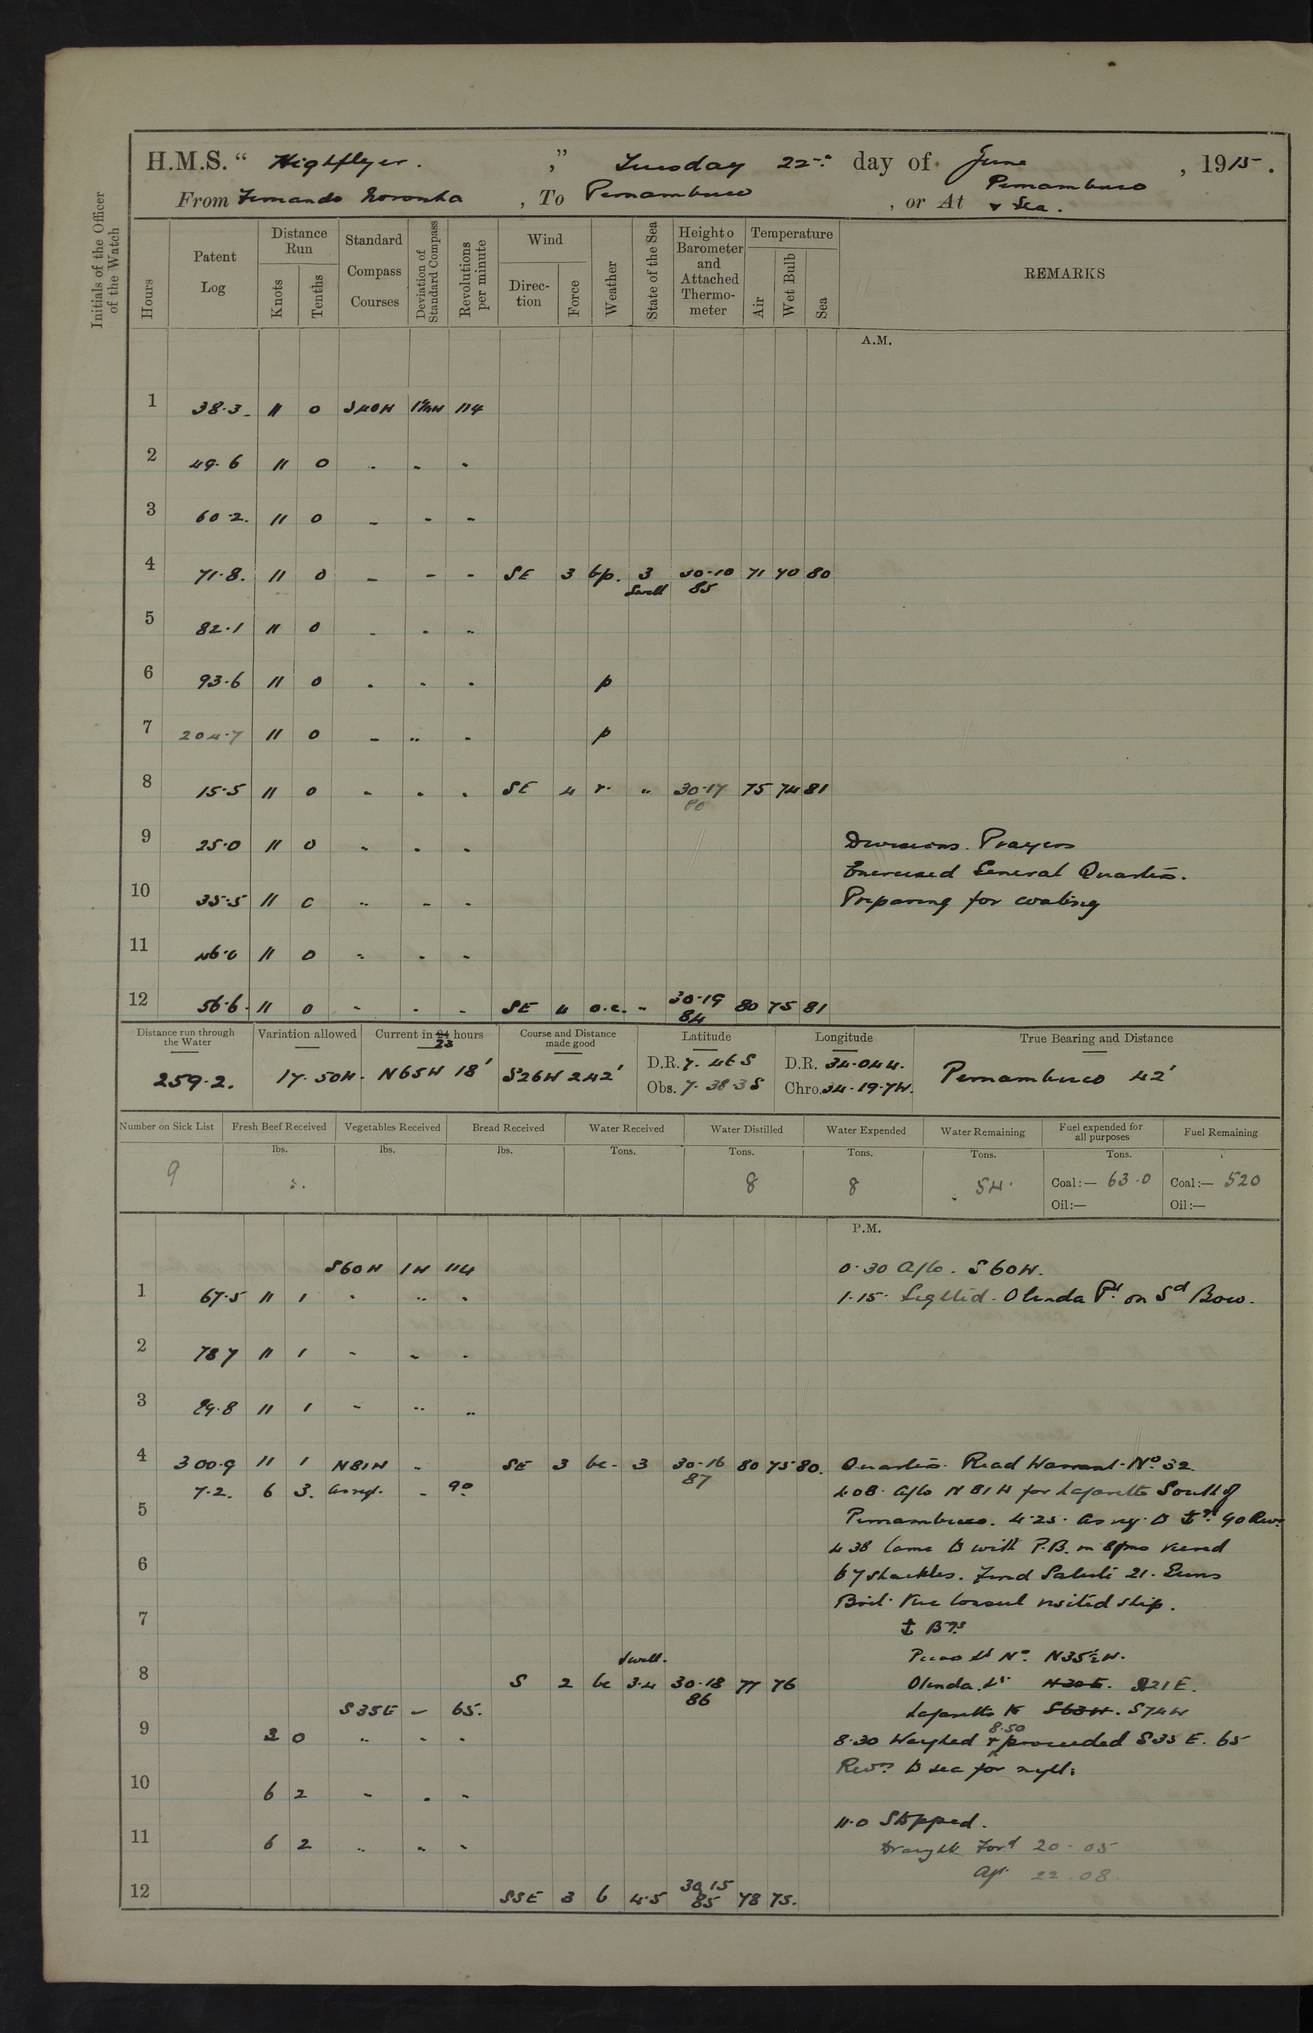 H.M.S. " Highflyer. " Tuesday 22nd day of June, 1915.
From Fernando Noronha, To Pernambuco, or At Pernambuco & Sea.
Initials of the Officer of the Watch
Hours
Patent Log
Distance Run
Knots Tenths
Standard Compass Courses
Deviation of Standard Compass
Revolutions per minute
Wind
Direc-tion Force
Weather
State of the Sea
Height o Barometer and Attached Thermo-meter
Temperature
Air Wet Bulb Sea
REMARKS
A.M.
1 38.3 11 0 S40W 1½W 114
2 49.6 11 0 " " "
3 60.2 11 0 " " "
4 71.8 11 0 " " " SE 3 bp. 3 Swell 30.10 85 71 70 80
5 82.1 11 0 " " "
6 93.6 11 0 " " " p
7 204.7 11 0 " " " p
8 15.5 11 0 " " " SE 4 r. " 30.17 80 75 74 81
9 25.0 11 0 " " " Divisions. Prayers
Exercised General Quarters.
10 35.5 11 0 " " " Preparing for coaling
11 46.0 11 0 " " "
12 56.6 11 0 " " " SE 4 o.c. " 30.19 84 80 75 81
Distance run through the Water 259.2.
Variation allowed 17.50W.
Current in 24 23 hours N65W 18'
Course and Distance made good S26W 242'
Latitude D.R. 7.46S Obs. 7.38.3S
Longitude D.R. 34.04W. Chro. 34.19.7W.
True Bearing and Distance Pernambuco 42'
Number on Sick List 9
Fresh Beef Received lbs.
Vegetables Received lbs.
Bread Received lbs.
Water Received Tons.
Water Distilled Tons. 8
Water Expended Tons. 8
Water Remaining Tons. 54.
Fuel expended for all purposes Tons. Coal:— 63.0 Oil:—
Fuel Remaining Coal:— 520 Oil:—
P.M.
S60W 1W 114 0.30 A/Co. S60W.
1 67.5 11 1 " " " 1.15. Sighted Olinda Pt on Sd Bow.
2 78.7 11 1 " " "
3 89.8 11 1 " " "
4 300.9 11 1 N81W " SE 3 bc. 3 30.16 87 80 75 80. Quarters. Read Warrant No 32
7.2. 6 3. as req. " 90 4.08. A/Co N81W for Lafarette South of
5 Pernambuco. 4.25. as req. to ⚓ 90 Revs
4.38 Came to with P.B. in 8 fms veered
6 to 7 shackles. Fired Salute 21. Guns
Brit. Vice Consul visited ship.
7 ⚓ Bgs
Picao Lt Ho. N35½W.
8 S 2 bc Swell. 3.4 30.18 86 77 76 Olinda Lt N30E. N21E.
S35E - 65. Lafarette S63W. S74W
9 2 0 " " " 8.30 Weighed & 8.50 proceeded S35E. 65
Revs to sea for night.
10 6 2 " " "
11.0 Stopped.
11 6 2 " " " Draught Ford 20.05
Aft. 22.08
12 SSE 3 b 4.5 30.15 85 78 75.